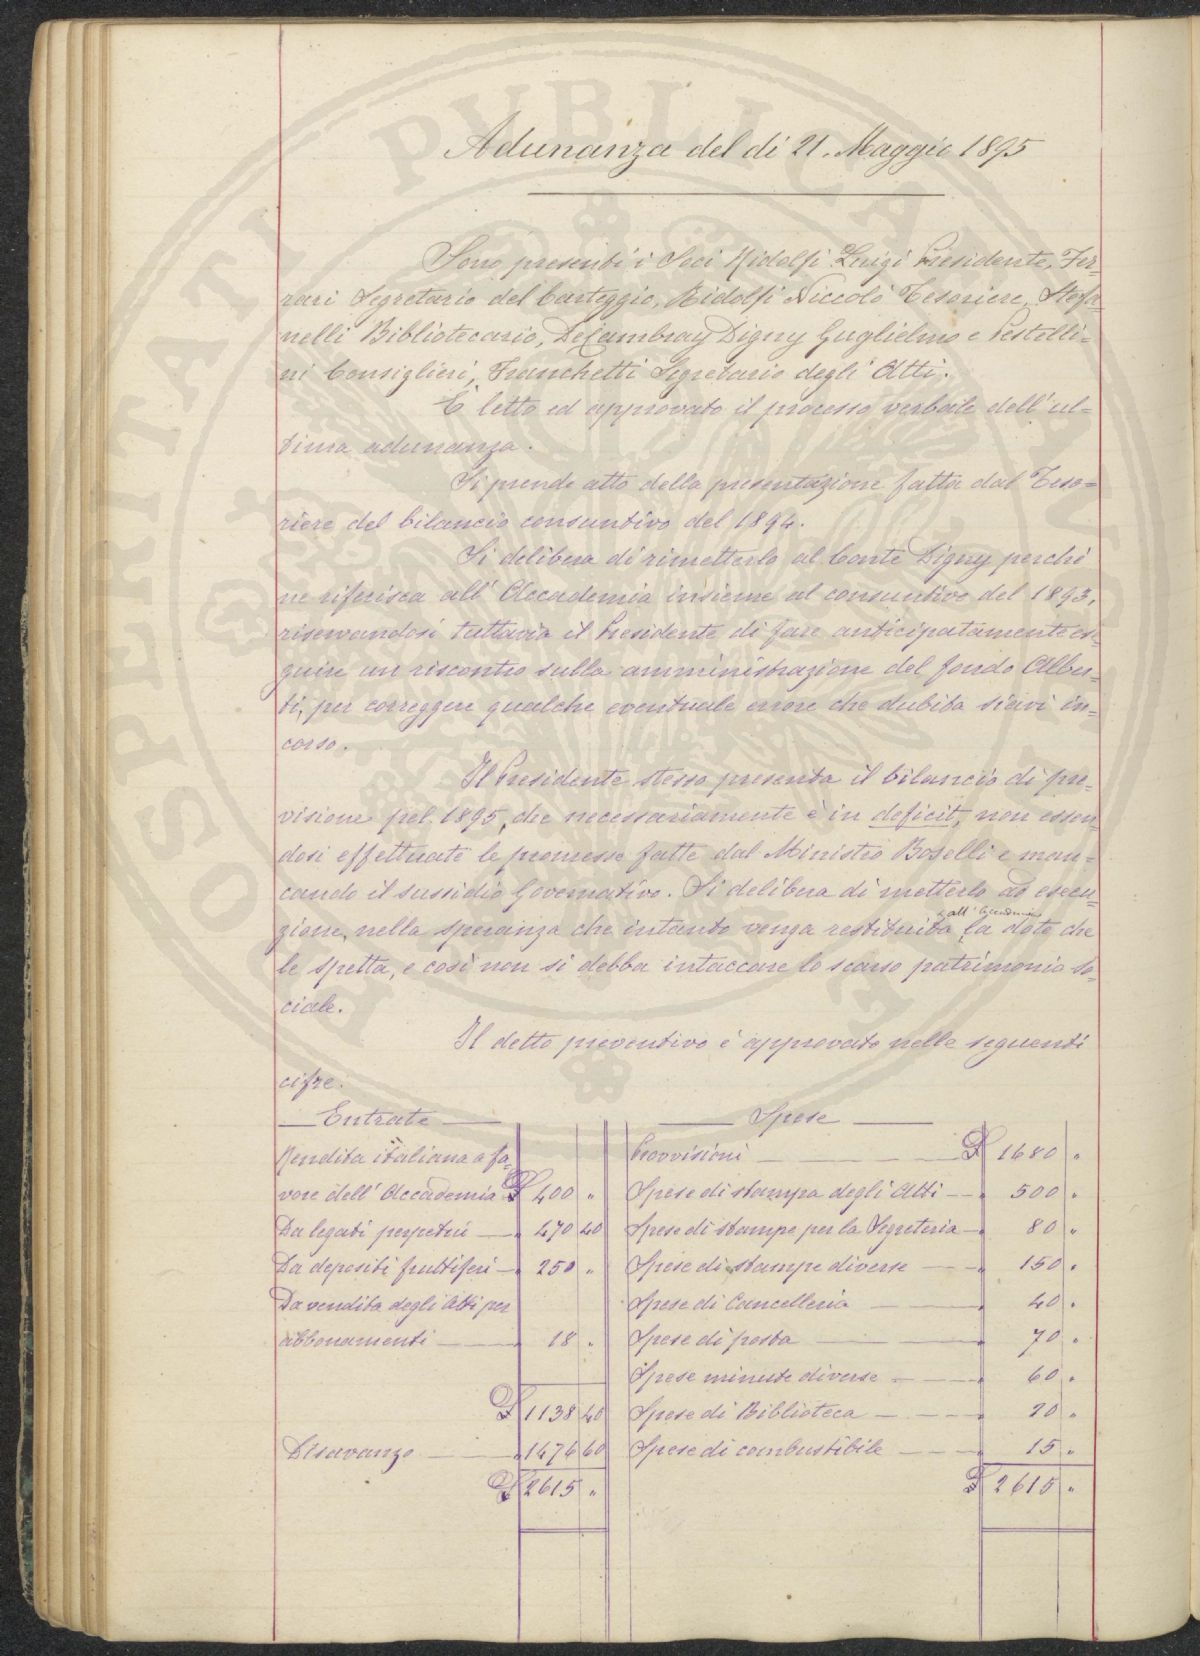 Adunanza del dì 21. Maggio 1895
Sono presenti i Soci Ridolfi Luigi Presidente, Fer-
rari Segretario del Carteggio, Ridolfi Niccolò Tesoriere, Stefa-
nelli Bibliotecario, DeCambray Digny Guglielmo e Pestelli-
ni Consiglieri, Franchetti Segretario degli Atti.
È letto ed approvato il processo verbale dell'ul-
tima adunanza.
Si prende atto della presentazione fatta dal Teso-
riere del bilancio consuntivo del 1894.
Si delibera di rimetterlo al Conte Digny perchè
ne riferisca all'Accademia insieme al consuntivo del 1893,
riservandosi tuttavia il Presidente di fare anticipatamente ese-
guire un riscontro sulla amministrazione del fondo Alber-
ti, per correggere qualche eventuale errore che dubita siavi in-
corso.
Il Presidente stesso presenta il bilancio di pre-
visione pel 1895, che necessariamente è in deficit, non essen-
dosi effettuate le promesse fatte dal Ministro Boselli e man-
cando il sussidio Governativo. Si delibera di metterlo ad esecu-
zione, nella speranza che intanto venga restituita all'Accademia la dote che
le spetta, e così non si debba intaccare lo scarso patrimonio so-
ciale.
Il detto preventivo è approvato nelle seguenti
cifre:
Entrate
Rendita italiana a fa-
vore dell'Accademia £ 400 "
Da legati perpetui " 470 40
Da depositi fruttiferi " 250 "
Da vendita degli Atti per
abbonamenti " 18 "
£ 1138 40
Disavanzo " 1476 60
£ 2615 "
Spese
Provvisioni £ 1680 "
Spese di stampa degli Atti " 500 "
Spese di stampe per la Segreteria " 80 "
Spese di stampe diverse " 150 "
Spese di Cancelleria " 40 "
Spese di posta " 70 "
Spese minute diverse " 60 "
Spese di Biblioteca " 20 "
Spese di combustibile " 15 "
£ 2615 "